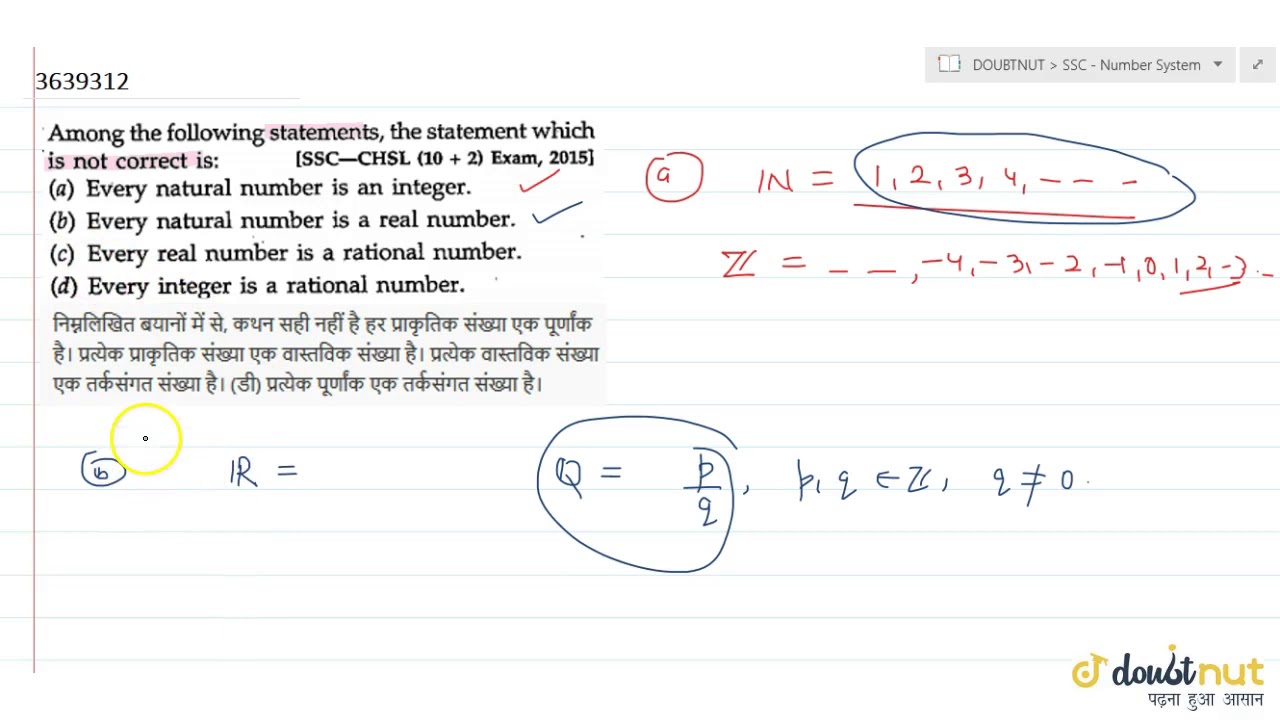 3639312
DOUBTNUT > SSC - Number System
Among the following statements, the statement which
is not correct is: [SSC—CHSL (10 + 2) Exam, 2015]
(a) Every natural number is an integer.
(b) Every natural number is a real number.
(c) Every real number is a rational number.
(d) Every integer is a rational number.
निम्नलिखित बयानों में से, कथन सही नहीं है हर प्राकृतिक संख्या एक पूर्णांक
है। प्रत्येक प्राकृतिक संख्या एक वास्तविक संख्या है। प्रत्येक वास्तविक संख्या
एक तर्कसंगत संख्या है। (डी) प्रत्येक पूर्णांक एक तर्कसंगत संख्या है।
a ℕ = 1, 2, 3, 4, – – –
ℤ = – –, -4, -3, -2, -1, 0, 1, 2, -3 --
b ℝ =
ℚ = p/q, p, q ∈ ℤ, q ≠ 0.
doubtnut
पढ़ना हुआ आसान